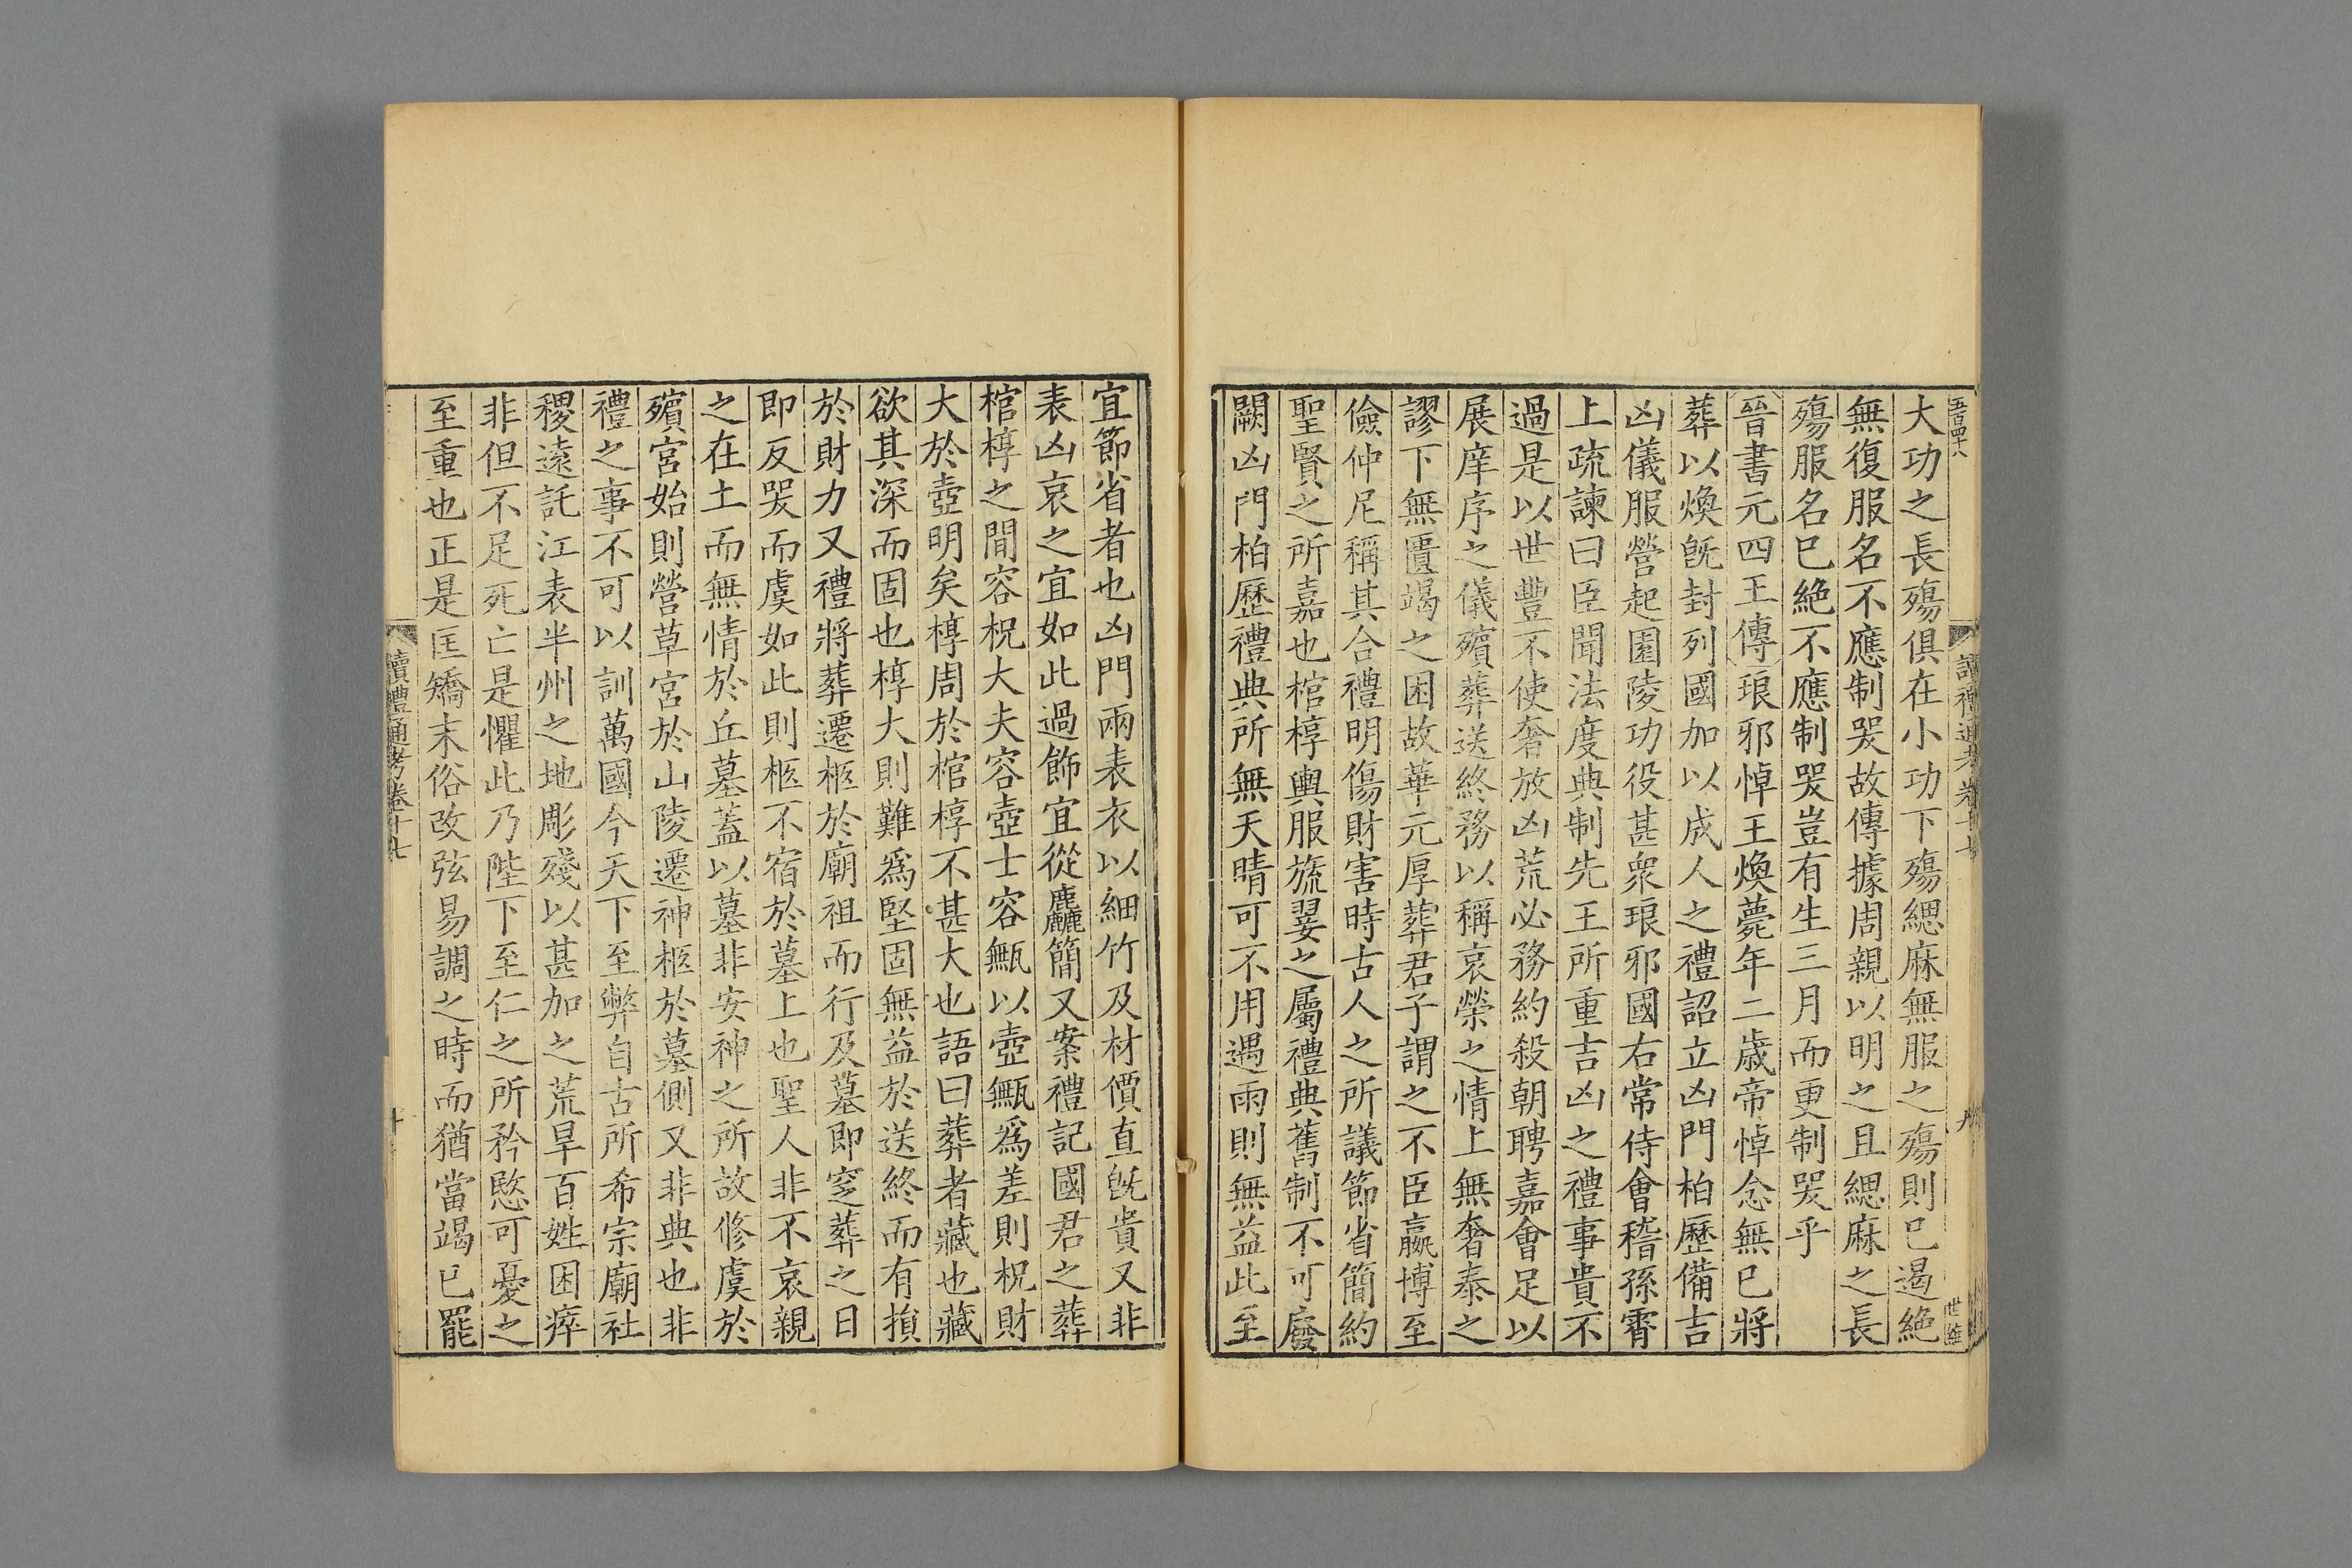 五百四十八
讀禮通考卷十七
九
世雄
大功之長殤俱在小功下殤緦麻無服之殤則已遏絶
無復服名不應制哭故傳據周親以明之且緦麻之長
殤服名已絶不應制哭豈有生三月而更制哭乎
晉書元四王傳琅邪悼王煥薨年二歲帝悼念無已將
葬以煥旣封列國加以成人之禮詔立凶門柏歷備吉
凶儀服營起園陵功役甚衆琅邪國右常侍會稽孫霄
上疏諫曰臣聞法度典制先王所重吉凶之禮事貴不
過是以世豐不使奢放凶荒必務約殺朝聘嘉會足以
展庠序之儀殯葬送終務以稱哀榮之情上無奢泰之
謬下無匱竭之困故華元厚葬君子謂之不臣嬴博至
儉仲尼稱其合禮明傷財害時古人之所議節省簡約
聖賢之所嘉也棺椁輿服旒翣之屬禮典舊制不可廢
闕凶門柏歷禮典所無天晴可不用遇雨則無益此至
宜節省者也凶門兩表衣以細竹及材價直旣貴又非
表凶哀之宜如此過飾宜從麤簡又案禮記國君之葬
棺椁之間容柷大夫容壺士容甒以壺甒爲差則柷財
大於壺明矣椁周於棺椁不甚大也語曰葬者藏也藏
欲其深而固也椁大則難爲堅固無益於送終而有損
於財力又禮將葬遷柩於廟祖而行及墓即窆葬之日
即反哭而虞如此則柩不宿於墓上也聖人非不哀親
之在土而無情於丘墓蓋以墓非安神之所故修虞於
殯宮始則營草宮於山陵遷神柩於墓側又非典也非
禮之事不可以訓萬國今天下至弊自古所希宗廟社
稷遠託江表半州之地彫殘以甚加之荒旱百姓困瘁
非但不足死亡是懼此乃陛下至仁之所矜愍可憂之
至重也正是匡矯末俗改弦易調之時而猶當竭已罷
讀禮通考卷十七
十